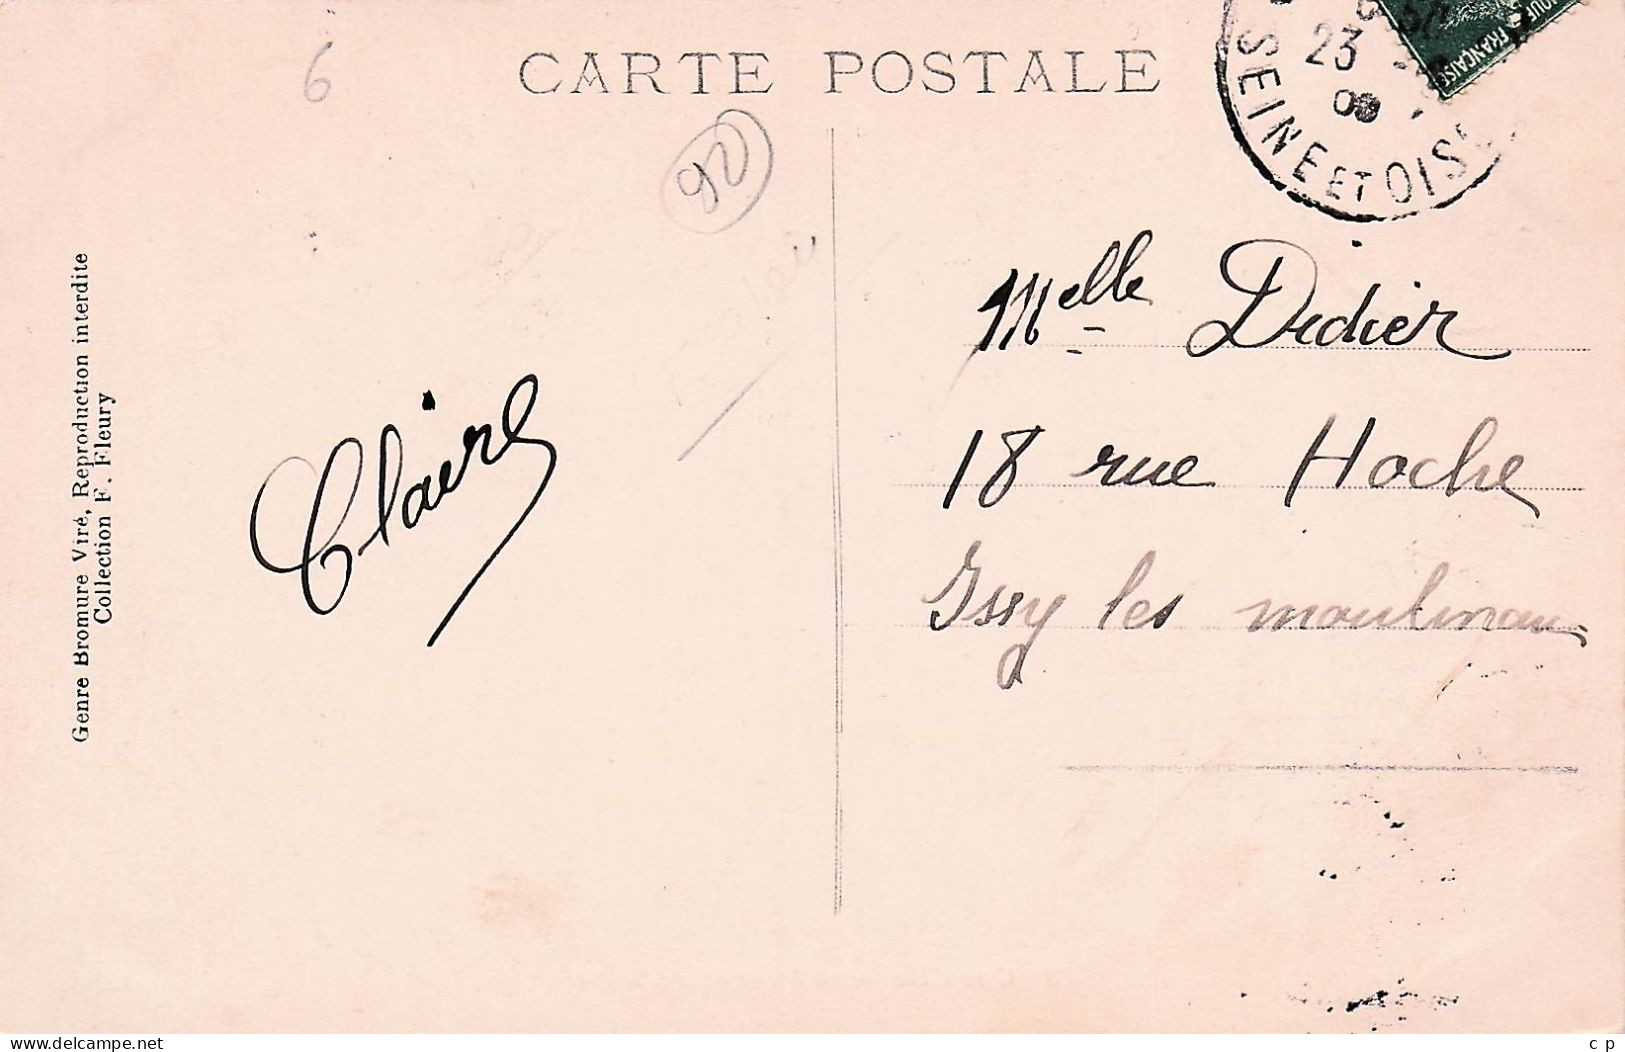 6
CARTE POSTALE
92
23
09
SEINE ET OISE
FRANÇAISE
Melle Didier
18 rue Hoche
Issy les moulineau
Claire
Genre Bromure Viré, Reproduction interdite
Collection F. Fleury
www.delcampe.net
c p